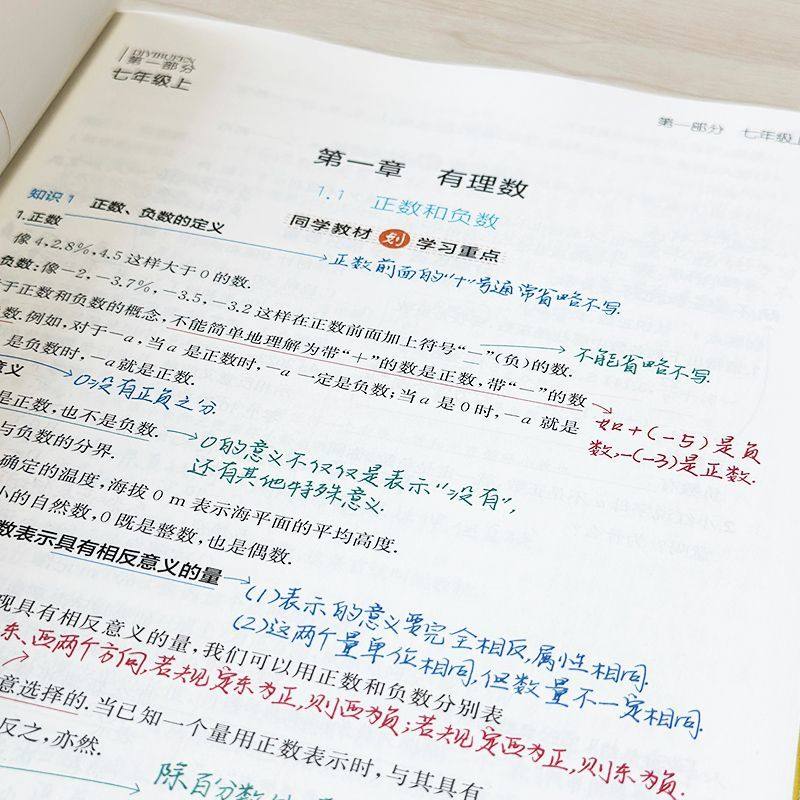 第一部分
七年级上
第一部分 七年级上
第一章 有理数
1.1 正数和负数
知识1 正数、负数的定义
同学教材 划 学习重点
1.正数
正数前面的“+”号通常省略不写.
像4,2.8%,4.5这样大于0的数.
负数:像-2,-3.7%,-3.5,-3.2这样在正数前面加上符号“-”(负)的数.
不能省略不写.
于正数和负数的概念,不能简单地理解为带“+”的数是正数,带“-”的数
数.例如,对于-a,当a是正数时,-a一定是负数;当a是0时,-a就是
是负数时,-a就是正数.
如+(-5)是负
数,-(-3)是正数.
意义
0没有正负之分.
是正数,也不是负数.
0的意义不仅仅是表示“没有”,
还有其他特殊意义.
与负数的分界.
确定的温度,海拔0 m表示海平面的平均高度.
小的自然数,0既是整数,也是偶数.
数表示具有相反意义的量
(1)表示的意义要完全相反,属性相同.
(2)这两个量单位相同,但数量不一定相同.
现具有相反意义的量,我们可以用正数和负数分别表
东、西两个方向,若规定东为正,则西为负;若规定西为正,则东为负.
意选择的.当已知一个量用正数表示时,与其具有
反之,亦然.
除百分数